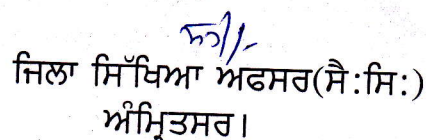 ਸਹੀ/-
ਜਿਲਾ ਸਿੱਖਿਆ ਅਫਸਰ(ਸੈ:ਸਿ:)
ਅੰਮ੍ਰਿਤਸਰ।